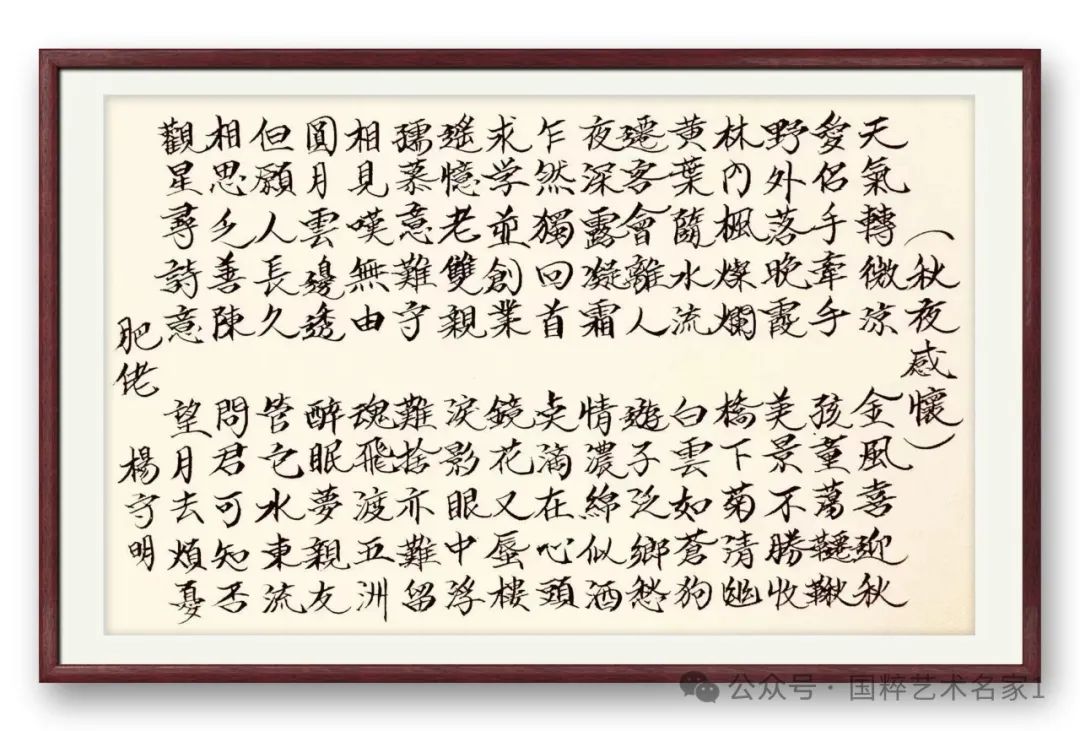 （秋夜感懷）
天氣轉微涼 金風喜迎秋
愛侶手牽手 孩董萬韆鞦
野外落晚霞 美景不勝收
林內楓燦爛 橋下菊清幽
黃葉隨水流 白雲如蒼狗
遷客會離人 遊子泛鄉愁
夜深露凝霜 情濃綿似酒
乍然獨回首 点滴在心頭
求学並創業 鏡花又蜃樓
遙憶老雙親 淚影眼中浮
孺慕意難守 難捨亦難留
相見嘆無由 魂飛渡五洲
圓月雲邊透 醉眠夢親友
但願人長久 管它水東流
相思乏善陳 問君可知否
觀星尋詩意 望月去煩憂
肥佬 楊守明
公众号·国粹艺术名家1